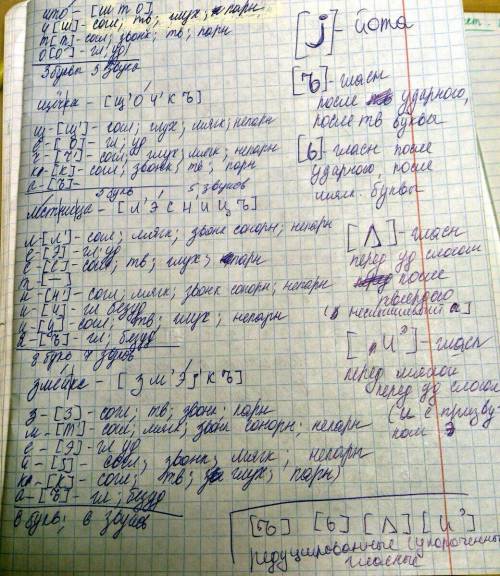 что - [ш т о]
ч [ш] - согл; тв; глух; парн
т [т] - согл; звонк; тв; парн
о [о́] - гл; уд
3 букв 3 звука
щёчка - [щ' о́ ч' к ъ]
щ - [щ'] - согл; глух; мягк; непарн
ё - [о́] - гл; уд
ч - [ч'] - согл; глух; мягк; непарн
к - [к] - согл; звонк; тв; парн
а - [ъ] -
5 букв 5 звуков
лестница - [л' э́ с н' и ц ъ]
л - [л'] - согл; мягк; звонк сонорн; непарн
е - [э́] - гл; уд
с - [с] - согл; тв; глух; парн
т - [-]
н - [н'] - согл; мягк; звонк сонорн; непарн
и - [и] - гл безуд
ц - [ц] - согл; тв; глух; непарн
а - [ъ] - гл; безуд
8 букв 7 звуков
змейка - [з м' э́ j к ъ]
з - [з] - согл; тв; звонк; парн
м - [м'] - согл; мягк; звонк сонорн; непарн
е - [э] - гл уд
й - [j] - согл; звонк; мягк; непарн
к - [к] - согл; тв; глух; парн
а - [ъ] - гл; безуд
6 букв; 6 звуков
[j] - йота
[ъ] - гласн
после ударного,
после тв буквы
[ь] - гласн после
ударного, после
мягк. буквы
[Λ] - гласн
перед уд слогом
после
твёрдого
[иэ] - гласн
перед мягкой
перед уд слогом
(и с призву-
ком э
[ъ] [ь] [Λ] [иэ]
редуцированные (укороченные
гласные